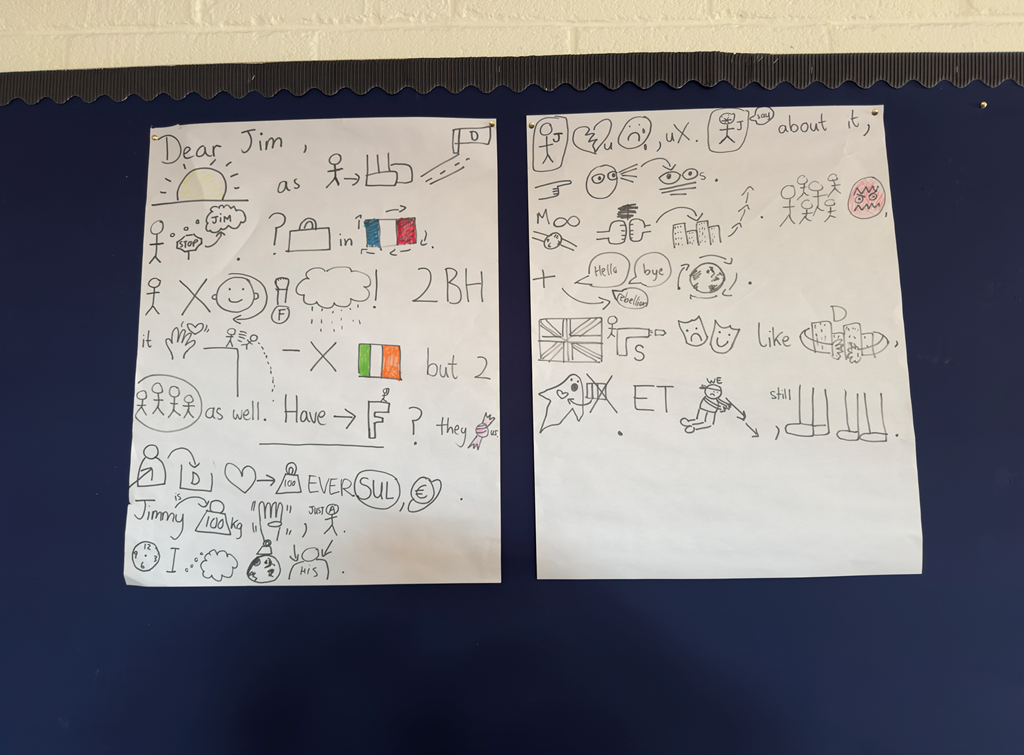 Dear Jim,
D
as
STOP JIM .
? in ? .
X F ! 2BH
it - X but 2
as well. Have → F ? they us,
D 100 EVER SUL, € .
Jimmy is 100kg " ", JUST A .
12 3 6 9 I HIS .
J u , uX. J say about it,
s .
M .
+ Hello bye rebellion .
S like D ,
X . ET WE , still .